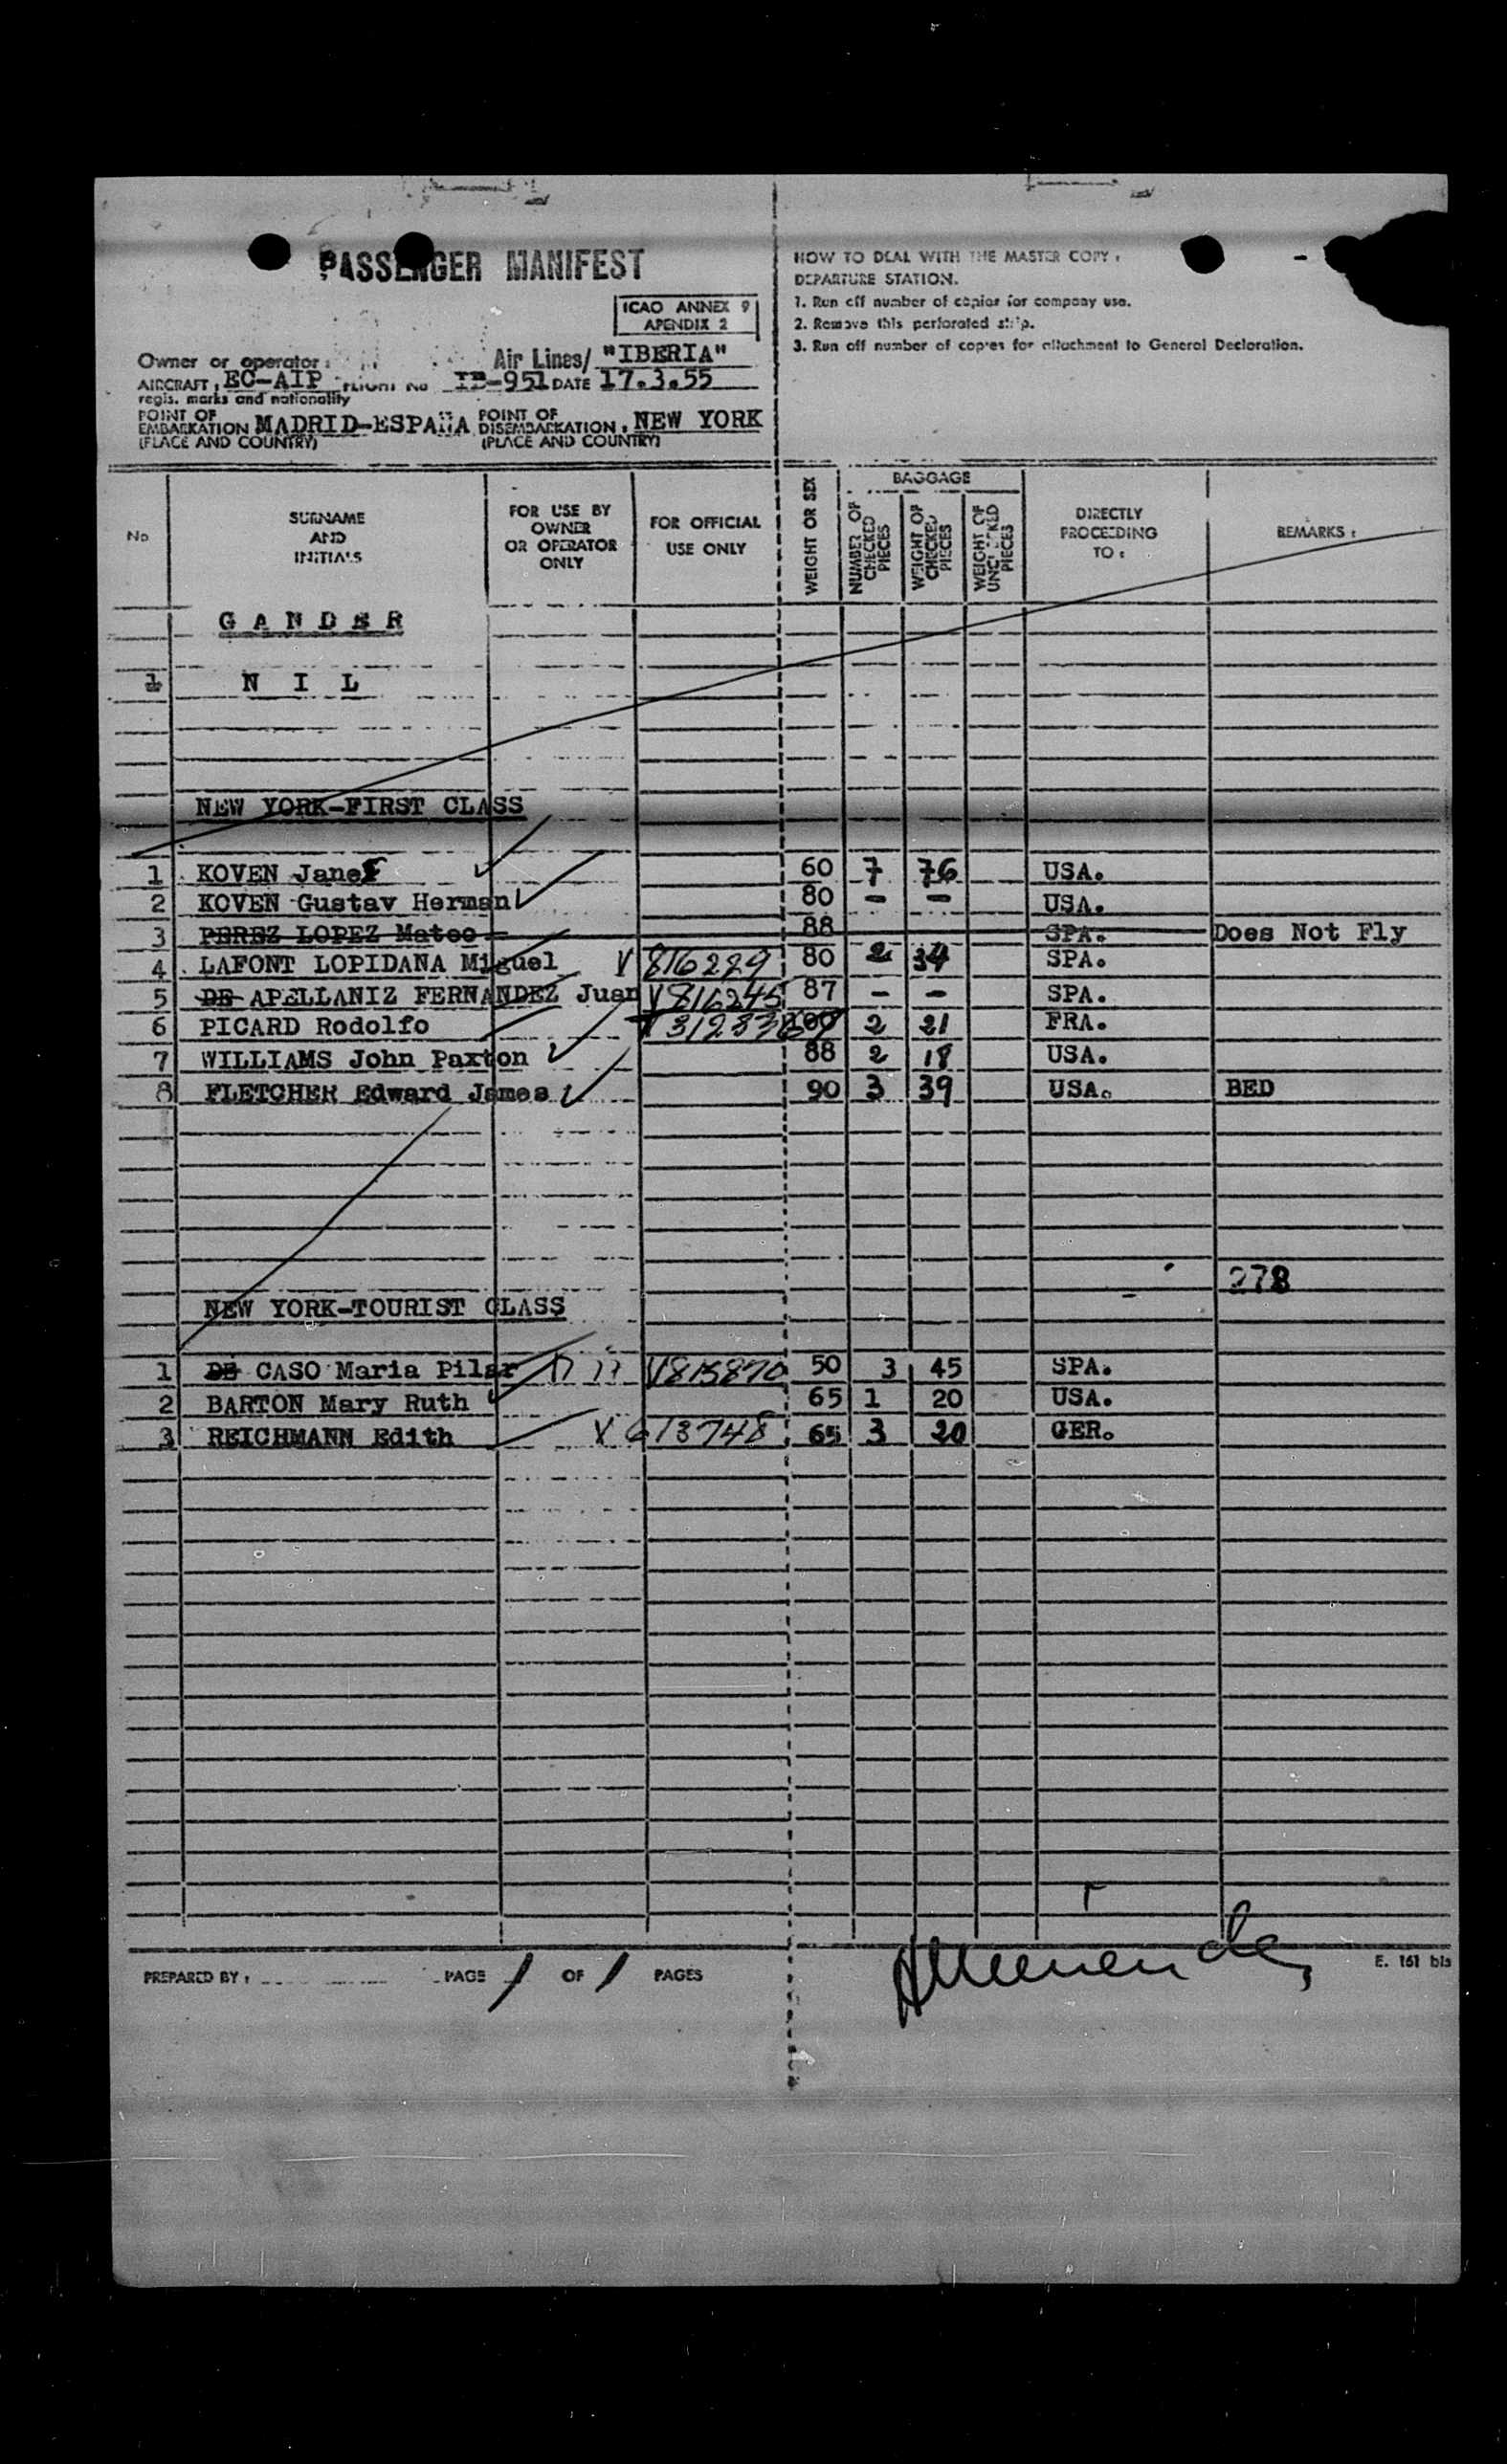 PASSENGER MANIFEST
ICAO ANNEX 9
APENDIX 2
Owner or operator: Air Lines/ "IBERIA"
AIRCRAFT: EC-AIP FLIGHT No IB-951 DATE 17.3.55
regis. marks and nationality
POINT OF EMBARKATION MADRID-ESPAÑA POINT OF DISEMBARKATION: NEW YORK
(PLACE AND COUNTRY) (PLACE AND COUNTRY)
HOW TO DEAL WITH THE MASTER COPY:
DEPARTURE STATION.
1. Run off number of copies for company use.
2. Remove this perforated strip.
3. Run off number of copies for attachment to General Declaration.
No
SURNAME
AND
INITIALS
FOR USE BY
OWNER
OR OPERATOR
ONLY
FOR OFFICIAL
USE ONLY
WEIGHT OR SEX
BAGGAGE
NUMBER OF CHECKED PIECES
WEIGHT OF CHECKED PIECES
WEIGHT OF UNCHECKED PIECES
DIRECTLY
PROCEEDING
TO:
REMARKS:
GANDER
1 NIL
NEW YORK-FIRST CLASS
1 KOVEN Jane 60 7 76 USA.
2 KOVEN Gustav Herman 80 - - USA.
3 PEREZ LOPEZ Mateo 88 SPA. Does Not Fly
4 LAFONT LOPIDANA Miguel V 816229 80 2 34 SPA.
5 DE APELLANIZ FERNANDEZ Juan V816245 87 - - SPA.
6 PICARD Rodolfo 100 2 21 FRA.
7 WILLIAMS John Paxton 88 2 18 USA.
8 FLETCHER Edward James 90 3 39 USA. BED
278
NEW YORK-TOURIST CLASS
1 DE CASO Maria Pilar V815870 50 3 45 SPA.
2 BARTON Mary Ruth 65 1 20 USA.
3 REICHMANN Edith V 613748 65 3 20 GER.
PREPARED BY: PAGE 1 OF 1 PAGES
E. 161 bis